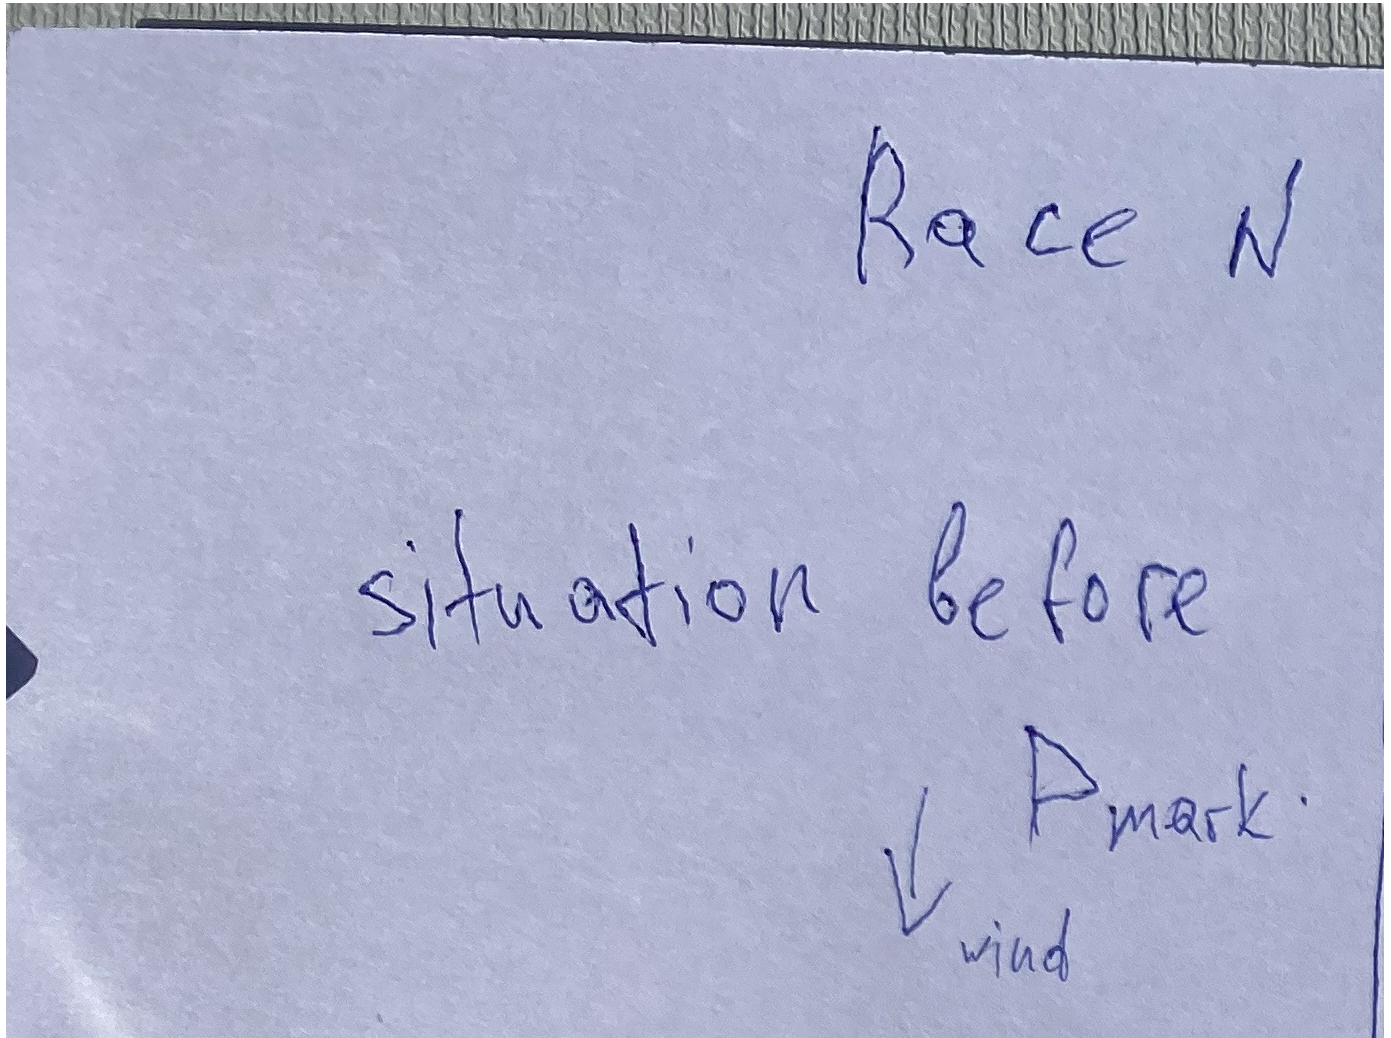 Race N
situation before
P mark.
wind